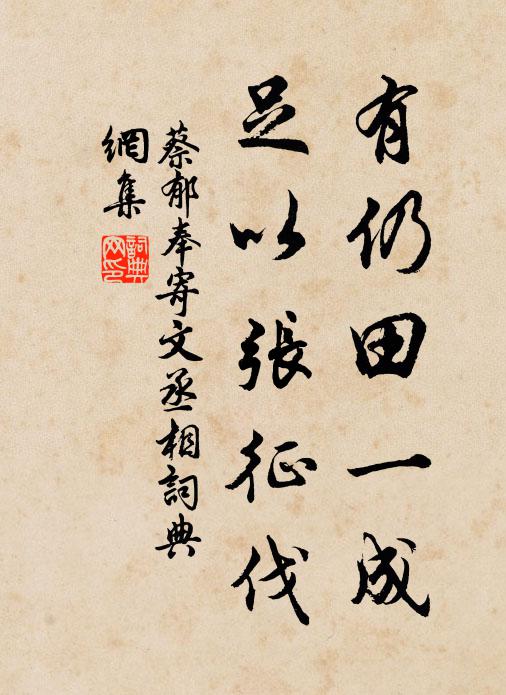 有仍田一成
足以張征伐
蔡郁奉寄文丞相詞典
網集
詞典网印